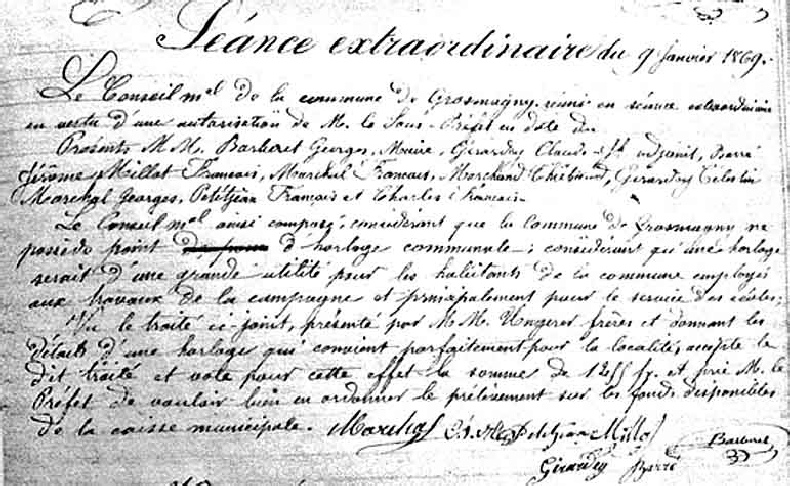 Séance extraordinaire du 9 Janvier 1869.
Le Conseil mal de la commune de Grosmagny, réuni en séance extraordinaire
en vertu d'une autorisation de M. le Sous-Préfet en date du
Présents M M. Barberet Georges, Maire, Girardey Claude adjoint, Barré
Jérôme, Millot Francais, Marchal Francais, Marchand Thiébaud, Girardey Célestin
Marchal Georges, Petitjean Francais et Charles Francais.
Le Conseil mal ainsi composé, considérant que la Commune de Grosmagny ne
possède point d'horloge communale; considérant qu'une horloge
serait d'une grande utilité pour les habitants de la commune employés
aux travaux de la campagne et principalement pour le service des écoles;
Vu le traité ci-joint, présenté par M M. Ungerer frères et donnant les
détails d'une horloge qui convient parfaitement pour la localité, accepte le
dit traité et vote pour cette effet la somme de fr. et prie M. le
Préfet de vouloir bien en ordonner le prélèvement sur les fonds disponibles
de la caisse municipale. Marchal Petitjean Millot Barberet
Girardey Barré